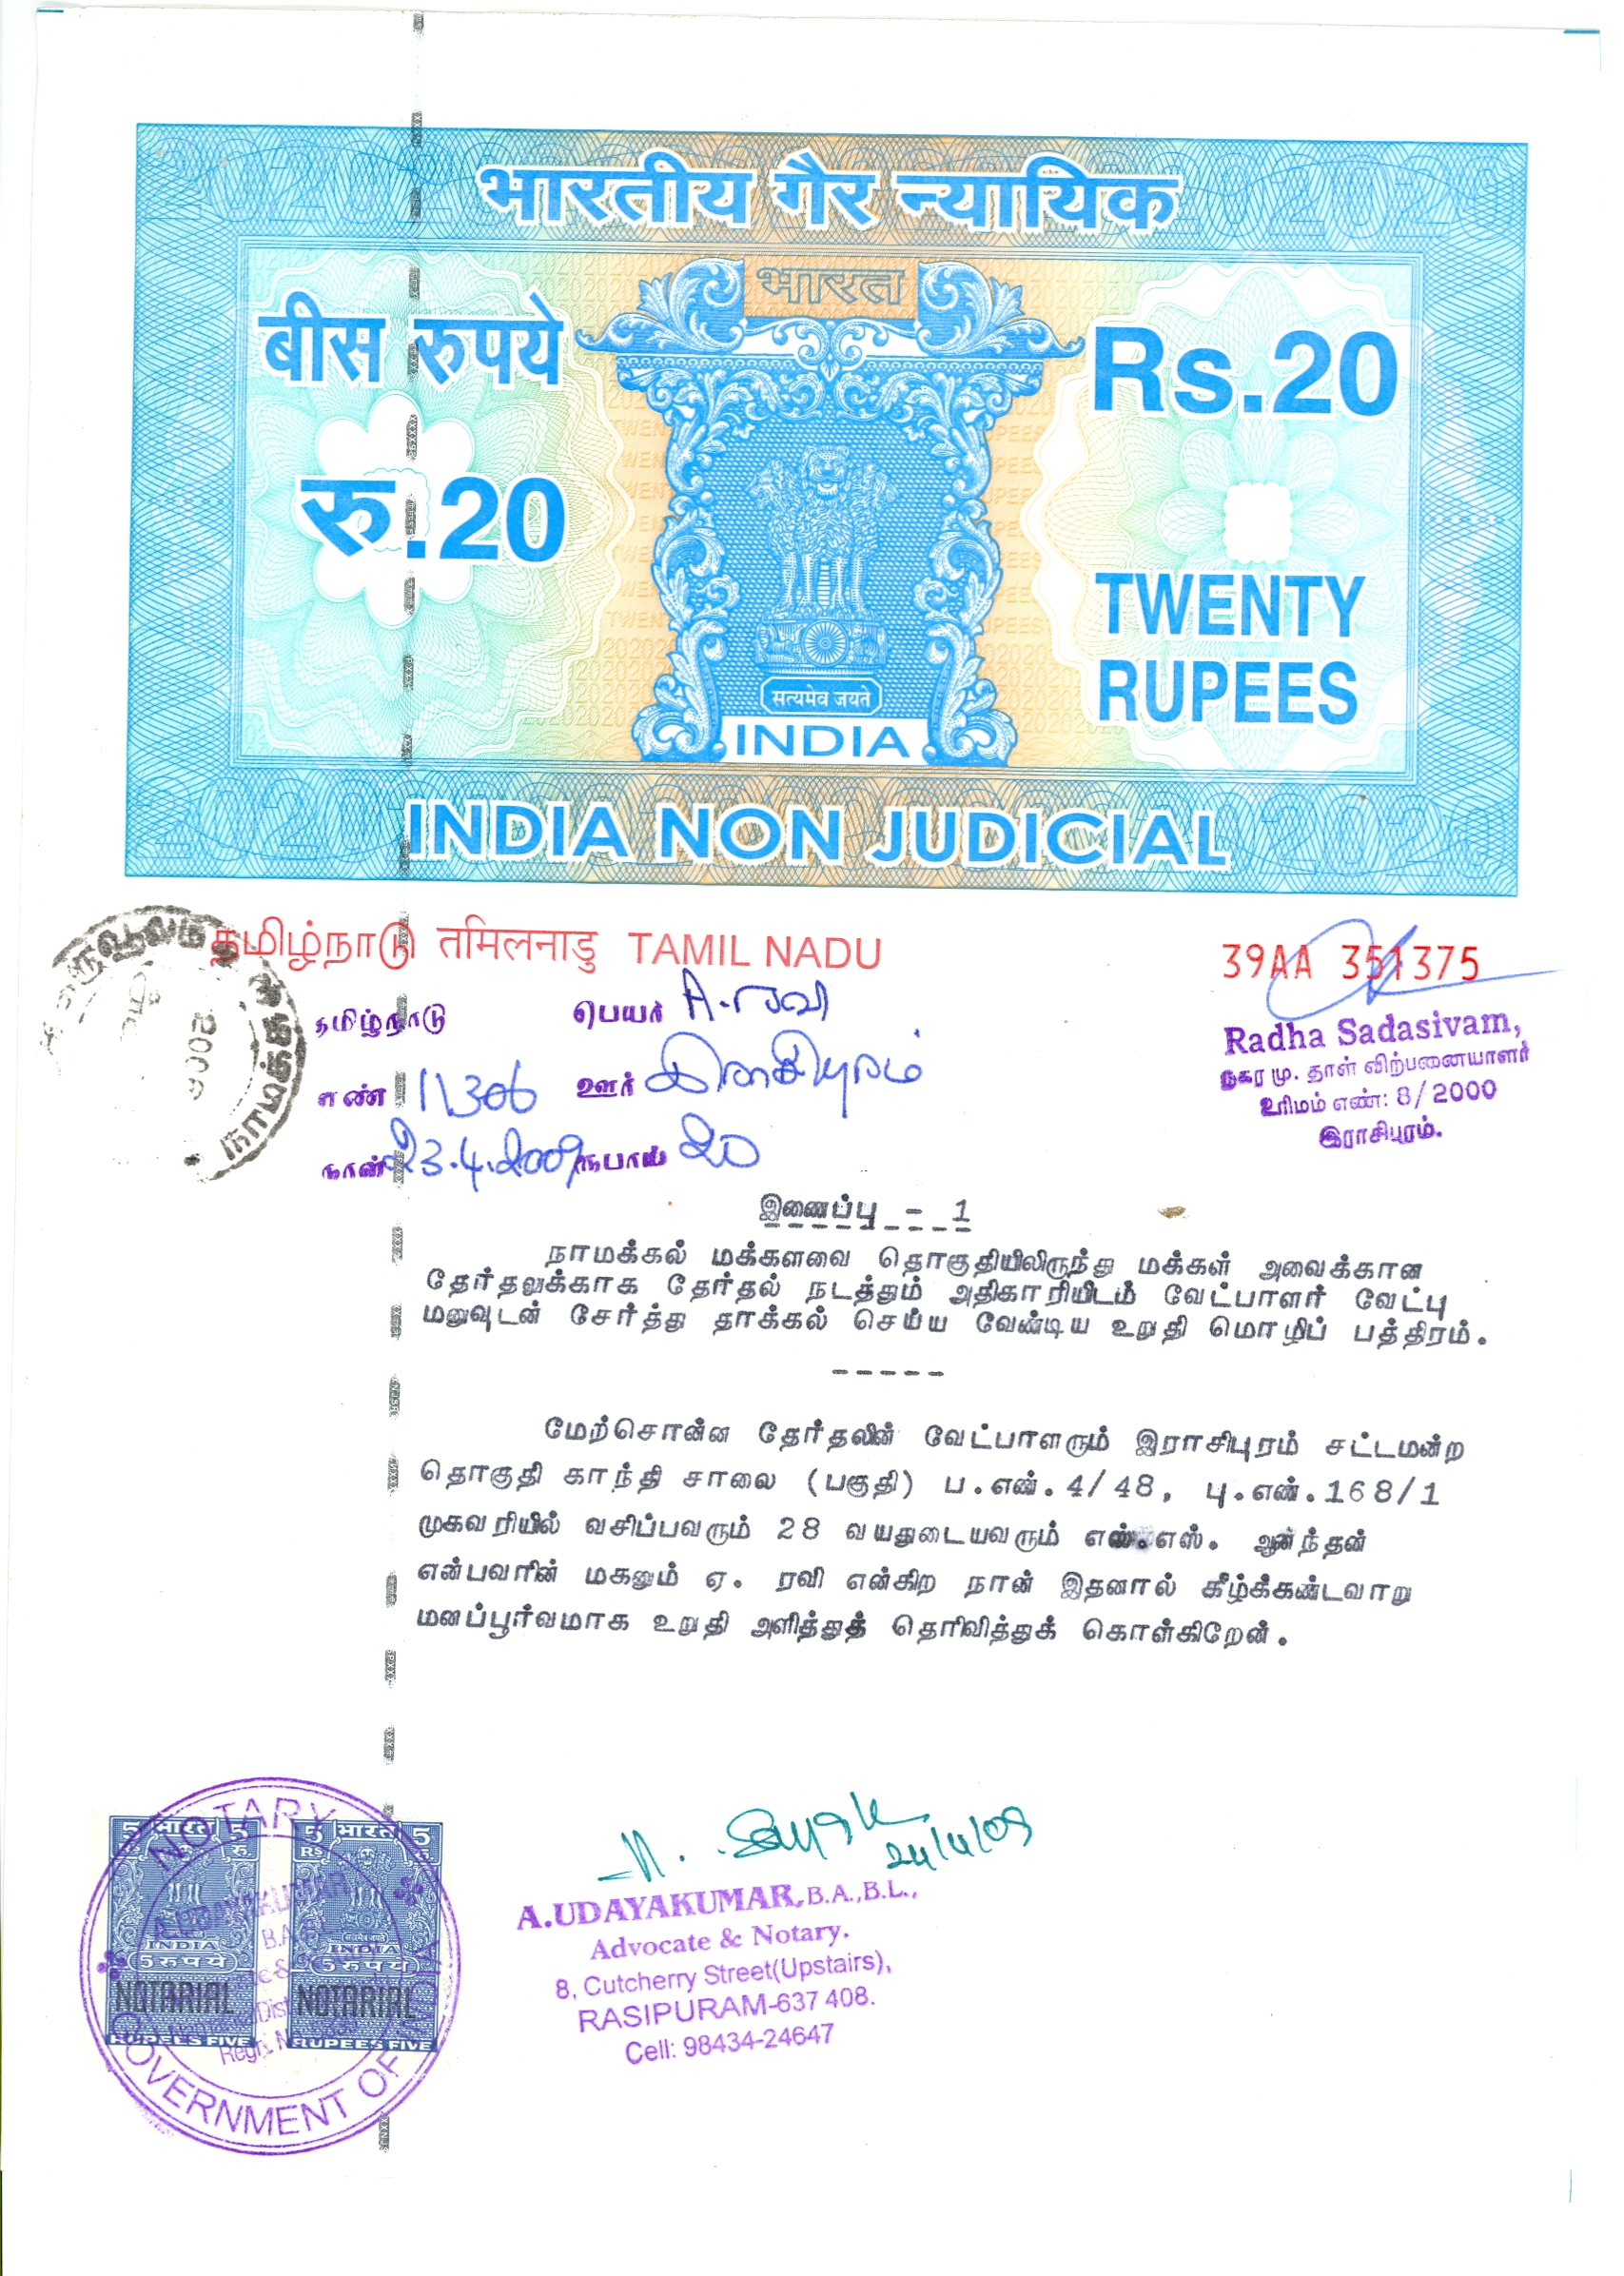 भारतीय गैर न्यायिक
भारत
बीस रुपये
Rs.20
रु.20
TWENTY
RUPEES
सत्यमेव जयते
INDIA
INDIA NON JUDICIAL
தமிழ்நாடு तमिलनाडु TAMIL NADU
39AA 351375
தமிழ்நாடு பெயர் A.ரவி
எண் 11306 ஊர் இராசிபுரம்
நாள் 23.4.2009 ரூபாய் 20
Radha Sadasivam,
நகர மு. தாள் விற்பனையாளர்
உரிமம் எண்: 8/2000
இராசிபுரம்.
இணைப்பு - 1
நாமக்கல் மக்களவை தொகுதியிலிருந்து மக்கள் அவைக்கான
தேர்தலுக்காக தேர்தல் நடத்தும் அதிகாரியிடம் வேட்பாளர் வேட்பு
மனுவுடன் சேர்த்து தாக்கல் செய்ய வேண்டிய உறுதி மொழிப் பத்திரம்.
-----
மேற்சொன்ன தேர்தலின் வேட்பாளரும் இராசிபுரம் சட்டமன்ற
தொகுதி காந்தி சாலை (பகுதி) ப.எண்.4/48, பு.எண்.168/1
முகவரியில் வசிப்பவரும் 28 வயதுடையவரும் எஸ்.எஸ். ஆனந்தன்
என்பவரின் மகனும் ஏ. ரவி என்கிற நான் இதனால் கீழ்க்கண்டவாறு
மனப்பூர்வமாக உறுதி அளித்துத் தெரிவித்துக் கொள்கிறேன்.
24/4/09
A.UDAYAKUMAR, B.A.,B.L.,
Advocate & Notary.
8, Cutcherry Street(Upstairs),
RASIPURAM-637 408.
Cell: 98434-24647
NOTARY
GOVERNMENT OF INDIA
A.UDAYAKUMAR
5 भारत 5
रु.
INDIA
5 रुपये
NOTARIAL
RUPEES FIVE
5 भारत 5
Rs रु.
INDIA
5 रुपये
NOTARIAL
RUPEES FIVE